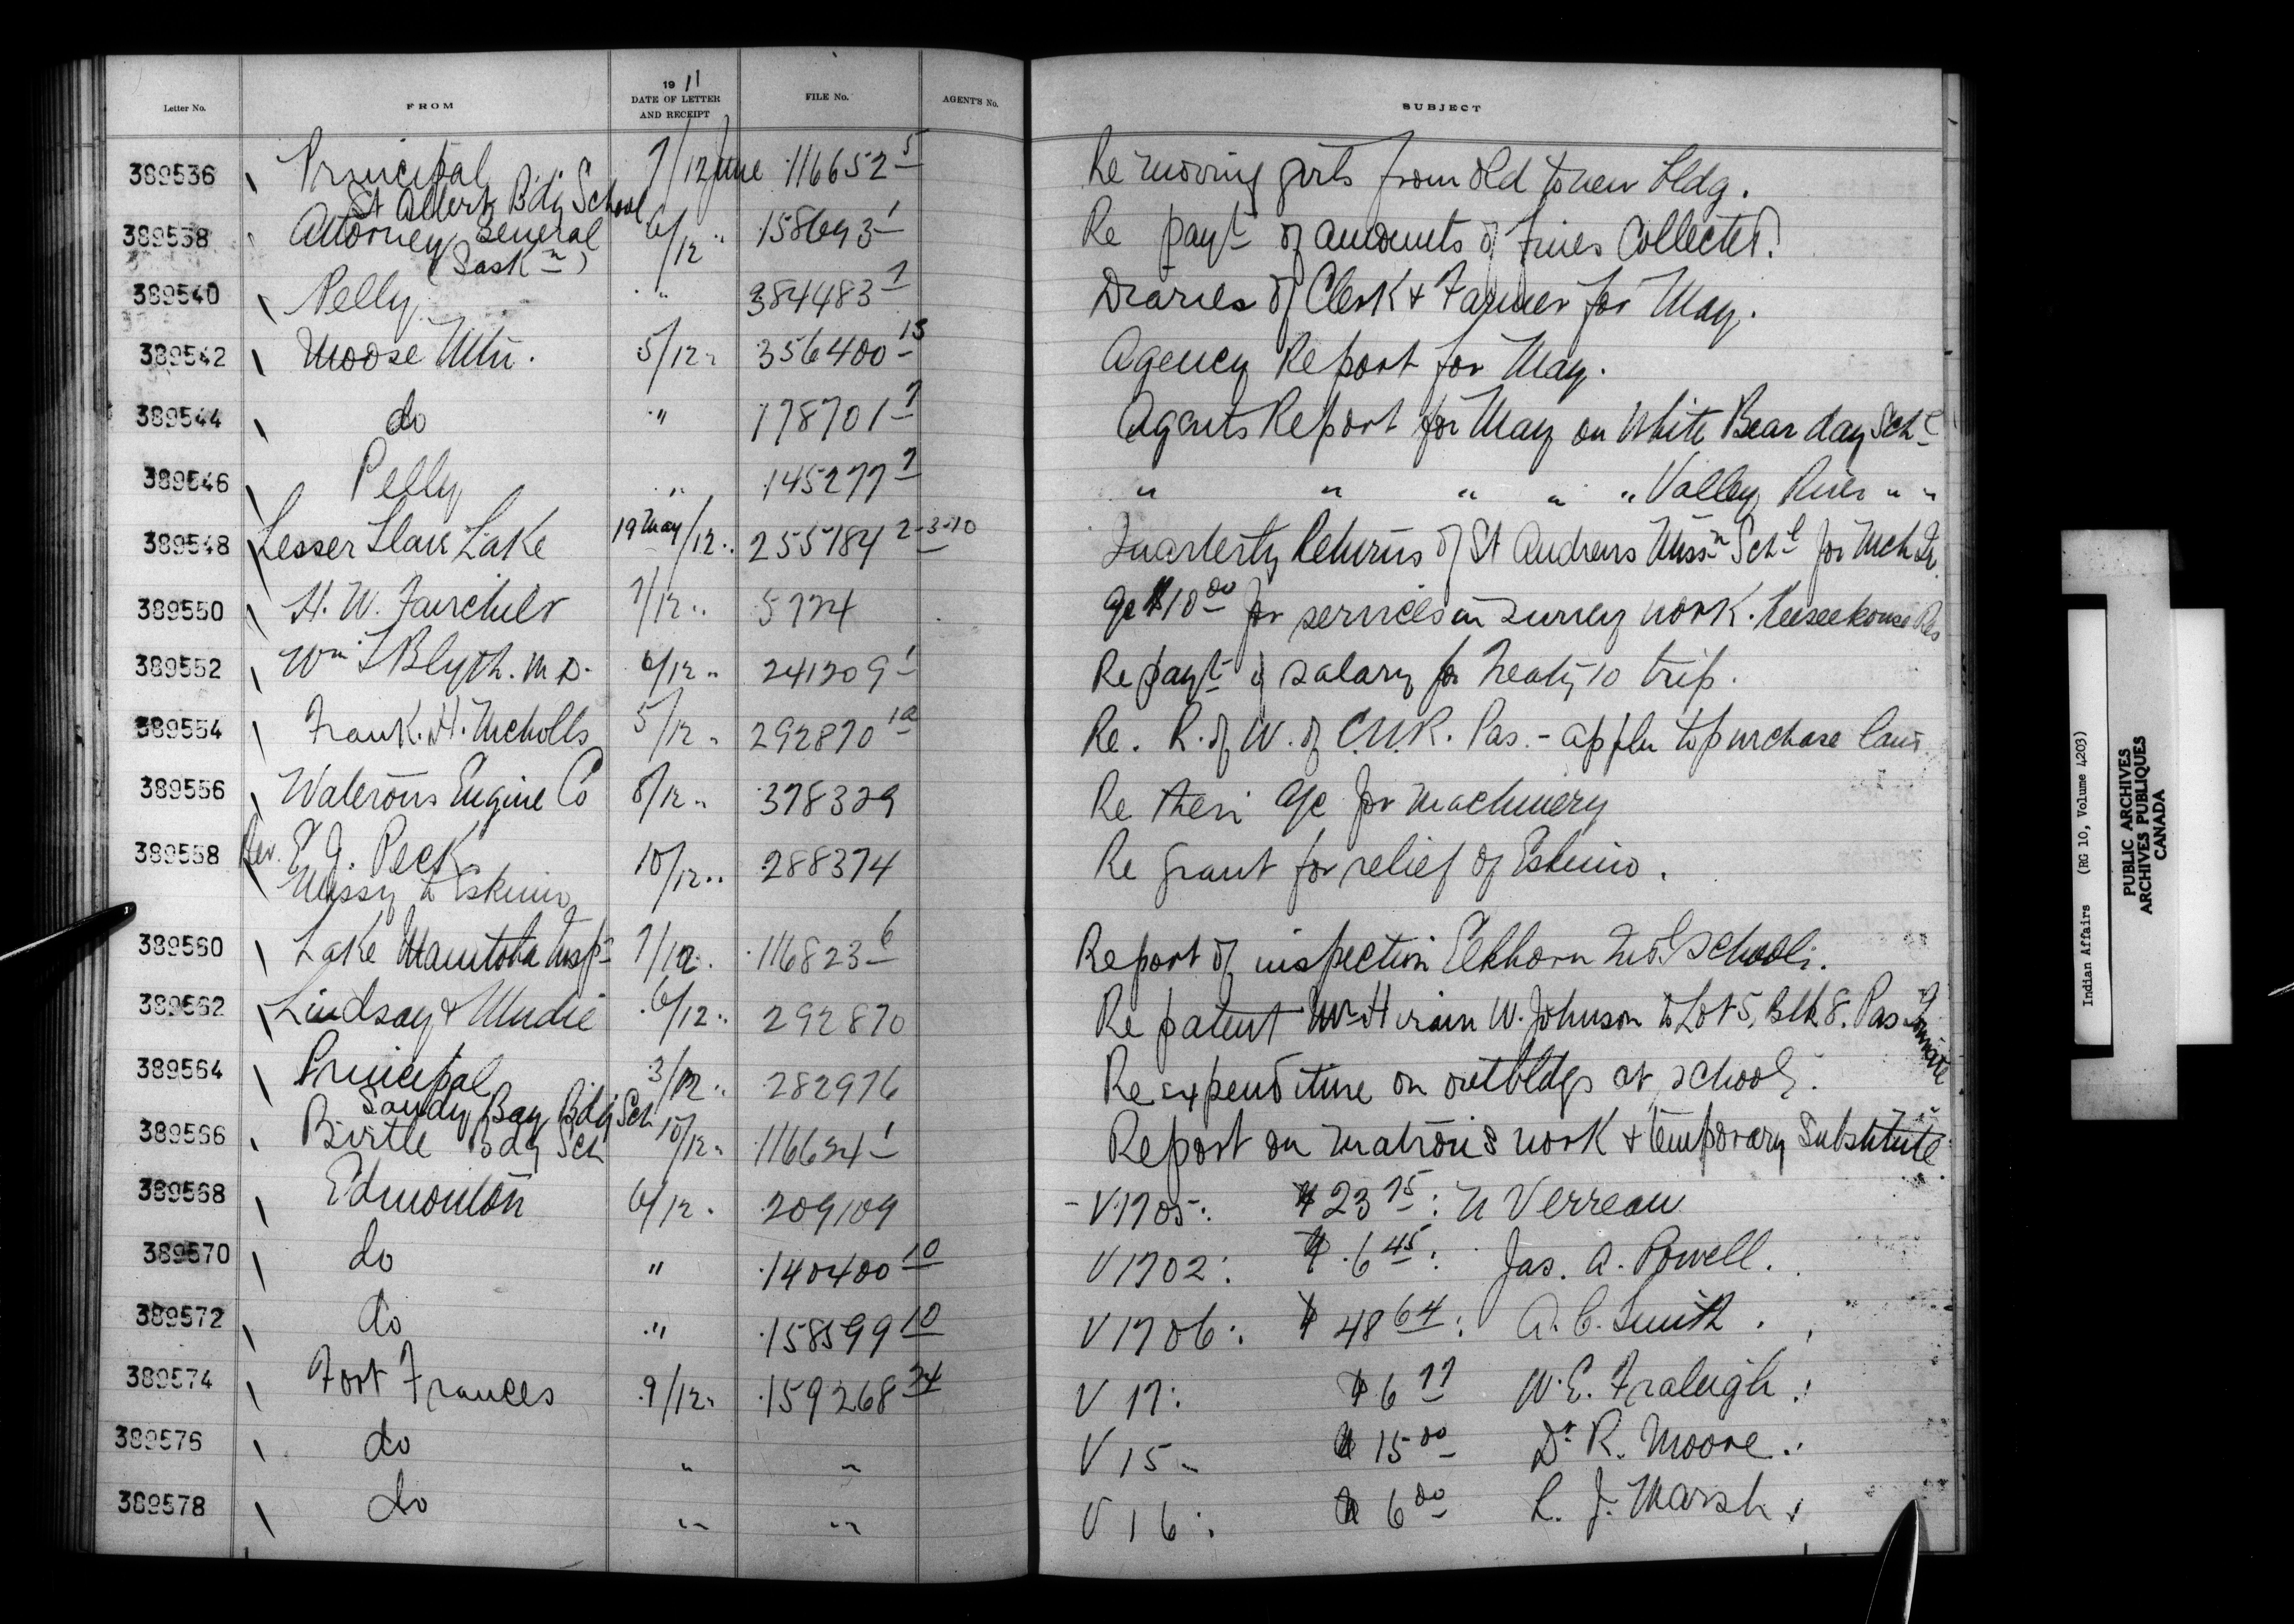 Letter No. FROM 1911 DATE OF LETTER AND RECEIPT FILE No. AGENT'S No. SUBJECT
389536 Principal 7/12 June 116652 5 Re moving girls from old to new bldg.
St Albert Bdg School
389538 Attorney General 6/12 " 158693 1 Re payt of amounts of Fines Collected.
(Sask n)
389540 Pelly " 384483 7 Diaries of Clerk & Farmer for May.
389542 Moose Mtn. 5/12 " 356400 13 Agency Report for May.
389544 do " 178701 7 Agents Report for May on White Bear day Schl
389546 Pelly " 145277 7 " " " " " Valley River " "
389548 Lesser Slave Lake 19 May/12 " 255784 2-3-10 Quarterly Returns of St Andrews Missn Schl for Mch Qr.
389550 H. W. Fairchild 7/12 " 5774 a/c $10 00 for services in survey work. Keeseekouse Res
389552 Wm J Blyth. M.D. 6/12 " 241209 1 Re payt of salary for Treaty 10 trip.
389554 Frank. H. Nicholls 5/12 " 292870 1a Re. R. of W. of C.N.R. Pas. - appln to purchase land.
389556 Waterous Engine Co 8/12 " 378329 Re their a/c for machinery
389558 Rev. E J. Peck 10/12 " 288374 Re grant for relief of Eskimo.
Missy to Eskimo
389560 Lake Manitoba Insp 7/12 " 116823 6 Report of inspection Elkhorn Indl school.
389562 Lindsay & Mudie 6/12 " 292870 Re patent Mr Hiram W. Johnson to Lot 5, Blk 8. Pas
389564 Principal 3/12 " 282976 Re expenditure on outbldgs at school.
Sandy Bay Bdg Sch
389566 Birtle Bdg Sch 10/12 " 116624 1 Report on matron's work & temporary Substitute.
389568 Edmonton 6/12 " 209109 - V1705: $23 75: N Verreau
389570 do " 140400 10 V1702: $6 45: Jas. A. Powell.
389572 do " 158599 10 V1706: $48 64: A. C. Smith.
389574 Fort Frances 9/12 " 159268 24 V 17: $6 77 W. E. Fraleigh.
389576 do " " V 15 " $15 00 Dr R. Moore.
389578 do " " V 16: $6 00 L. J. Marsh.
Indian Affairs (RG 10, Volume 4203)
PUBLIC ARCHIVES
ARCHIVES PUBLIQUES
CANADA